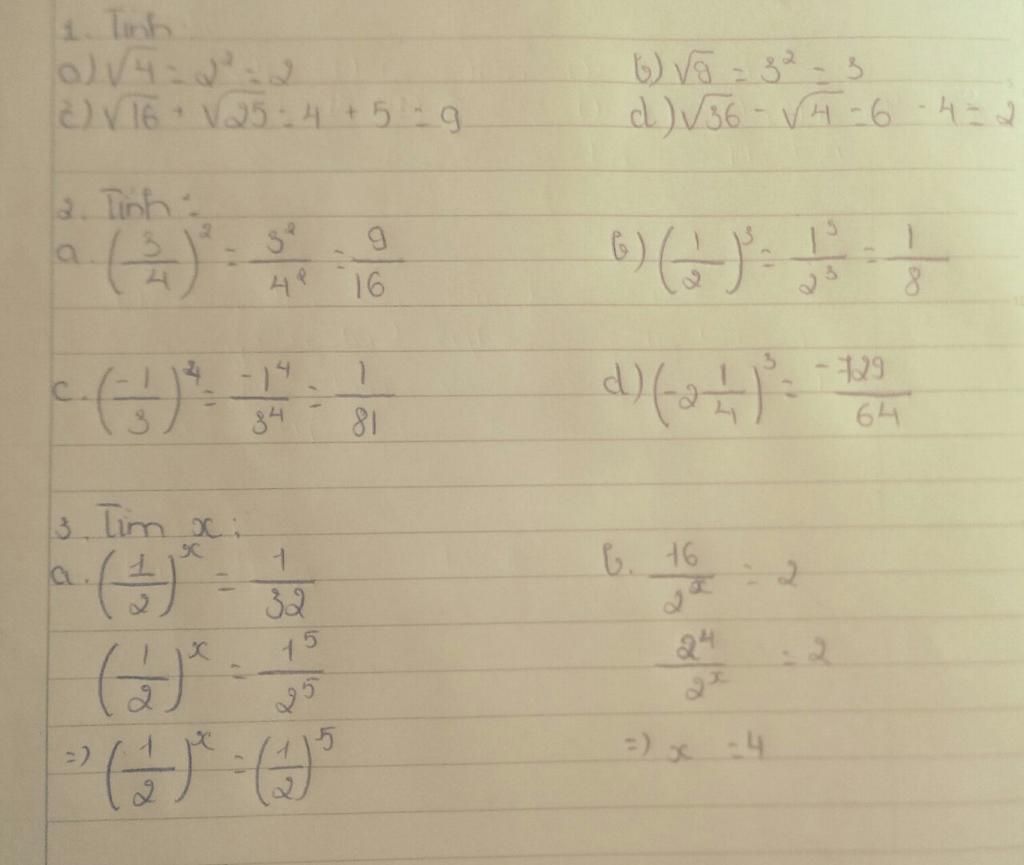 1. Tính
a) √4 = 2² = 2 b) √9 = 3² = 3
c) √16 + √25 = 4 + 5 = 9 d) √36 - √4 = 6 - 4 = 2
2. Tính:
a. (3/4)² = 3²/4² = 9/16 b) (1/2)³ = 1³/2³ = 1/8
c. (-1/3)⁴ = -1⁴/3⁴ = 1/81 d) (-2 1/4)³ = -729/64
3. Tìm x:
a. (1/2)^x = 1/32 b. 16/2^x = 2
(1/2)^x = 1⁵/2⁵ 2⁴/2^x = 2
=) (1/2)^x = (1/2)⁵ =) x = 4